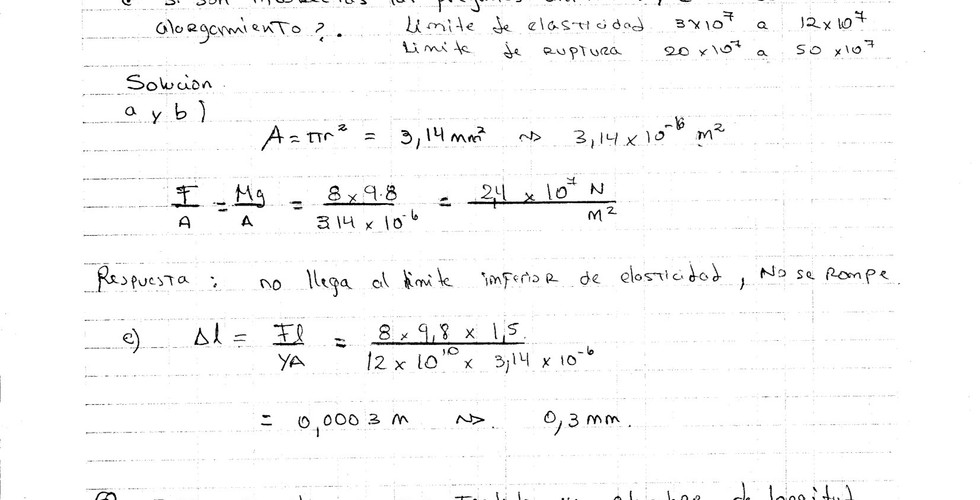 alargamiento?. Limite de elasticidad 3x10⁷ a 12x10⁷
Limite de ruptura 20x10⁷ a 50x10⁷
Solucion
a y b)
A = πr² = 3,14 mm² ~> 3,14 x 10⁻⁶ m²
F/A = Mg/A = 8 x 9.8 / 3.14 x 10⁻⁶ = 2,4 x 10⁷ N/m²
Respuesta: no llega al limite inferior de elasticidad, No se Rompe.
c) Δl = Fl/YA = 8 x 9,8 x 1,5. / 12 x 10¹⁰ x 3,14 x 10⁻⁶
= 0,0003 m ~>. 0,3 mm.
de longitud